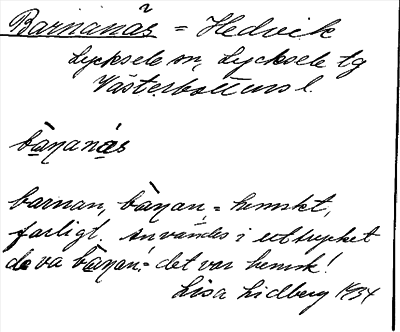 Barnanås = Hedvik
Lycksele sn, Lycksele tg
Västerbottens l.
bàṇanás
barnan, bàṇan = hemskt,
farligt. användes i uttrycket
de va bàṇan! = det var hemsk!
Lisa Lidberg 1934